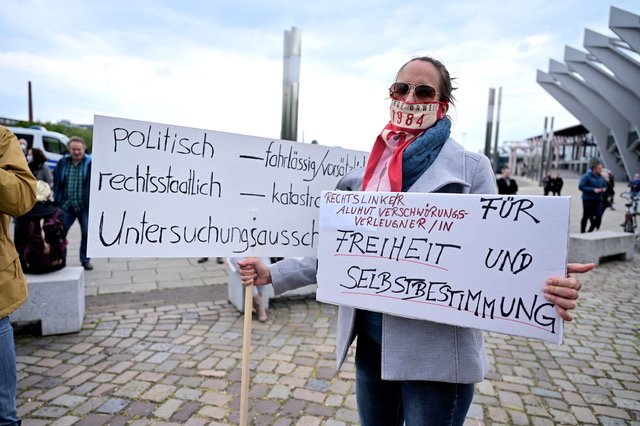 politisch – fahrlässig/vorsätzl
rechtsstaatlich – katastro
Untersuchungsaussch
1984
RECHTSLINKE/R
ALUHUT VERSCHWÖRUNGS-
VERLEUGNER/IN
FÜR
FREIHEIT UND
SELBSTBESTIMMUNG